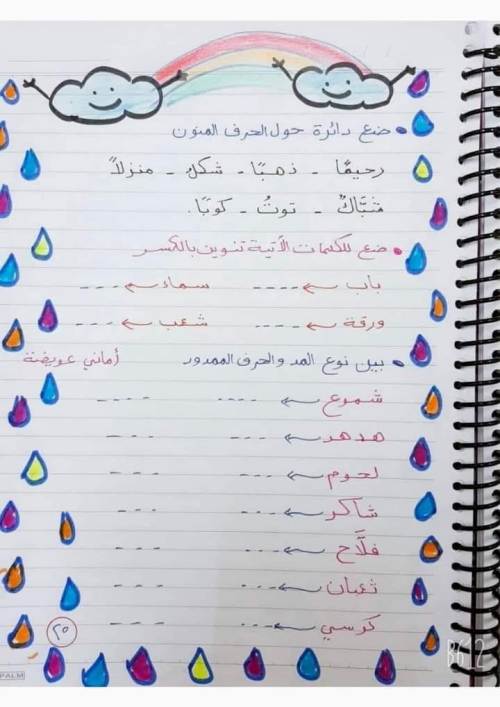 ضع دائرة حول الحرف المنون
رحيمًا - ذهبًا - شكل - منزلاً
شبَّاكٌ - توتٌ - كوبًا.
ضع للكلمات الآتية تنوين بالكسر
باب ← ---- سماء ← ---
ورقة ← ---- شعب ← ---
بين نوع المد والحرف الممدود أماني عويضة
شموع ← ---- ----
هدهد ← --- ---
لحوم ← --- ---
شاكر ← --- ---
فلَّاح ← --- ---
ثعبان ← --- ---
كرسي ← --- ---
٢٥
PALM
B612